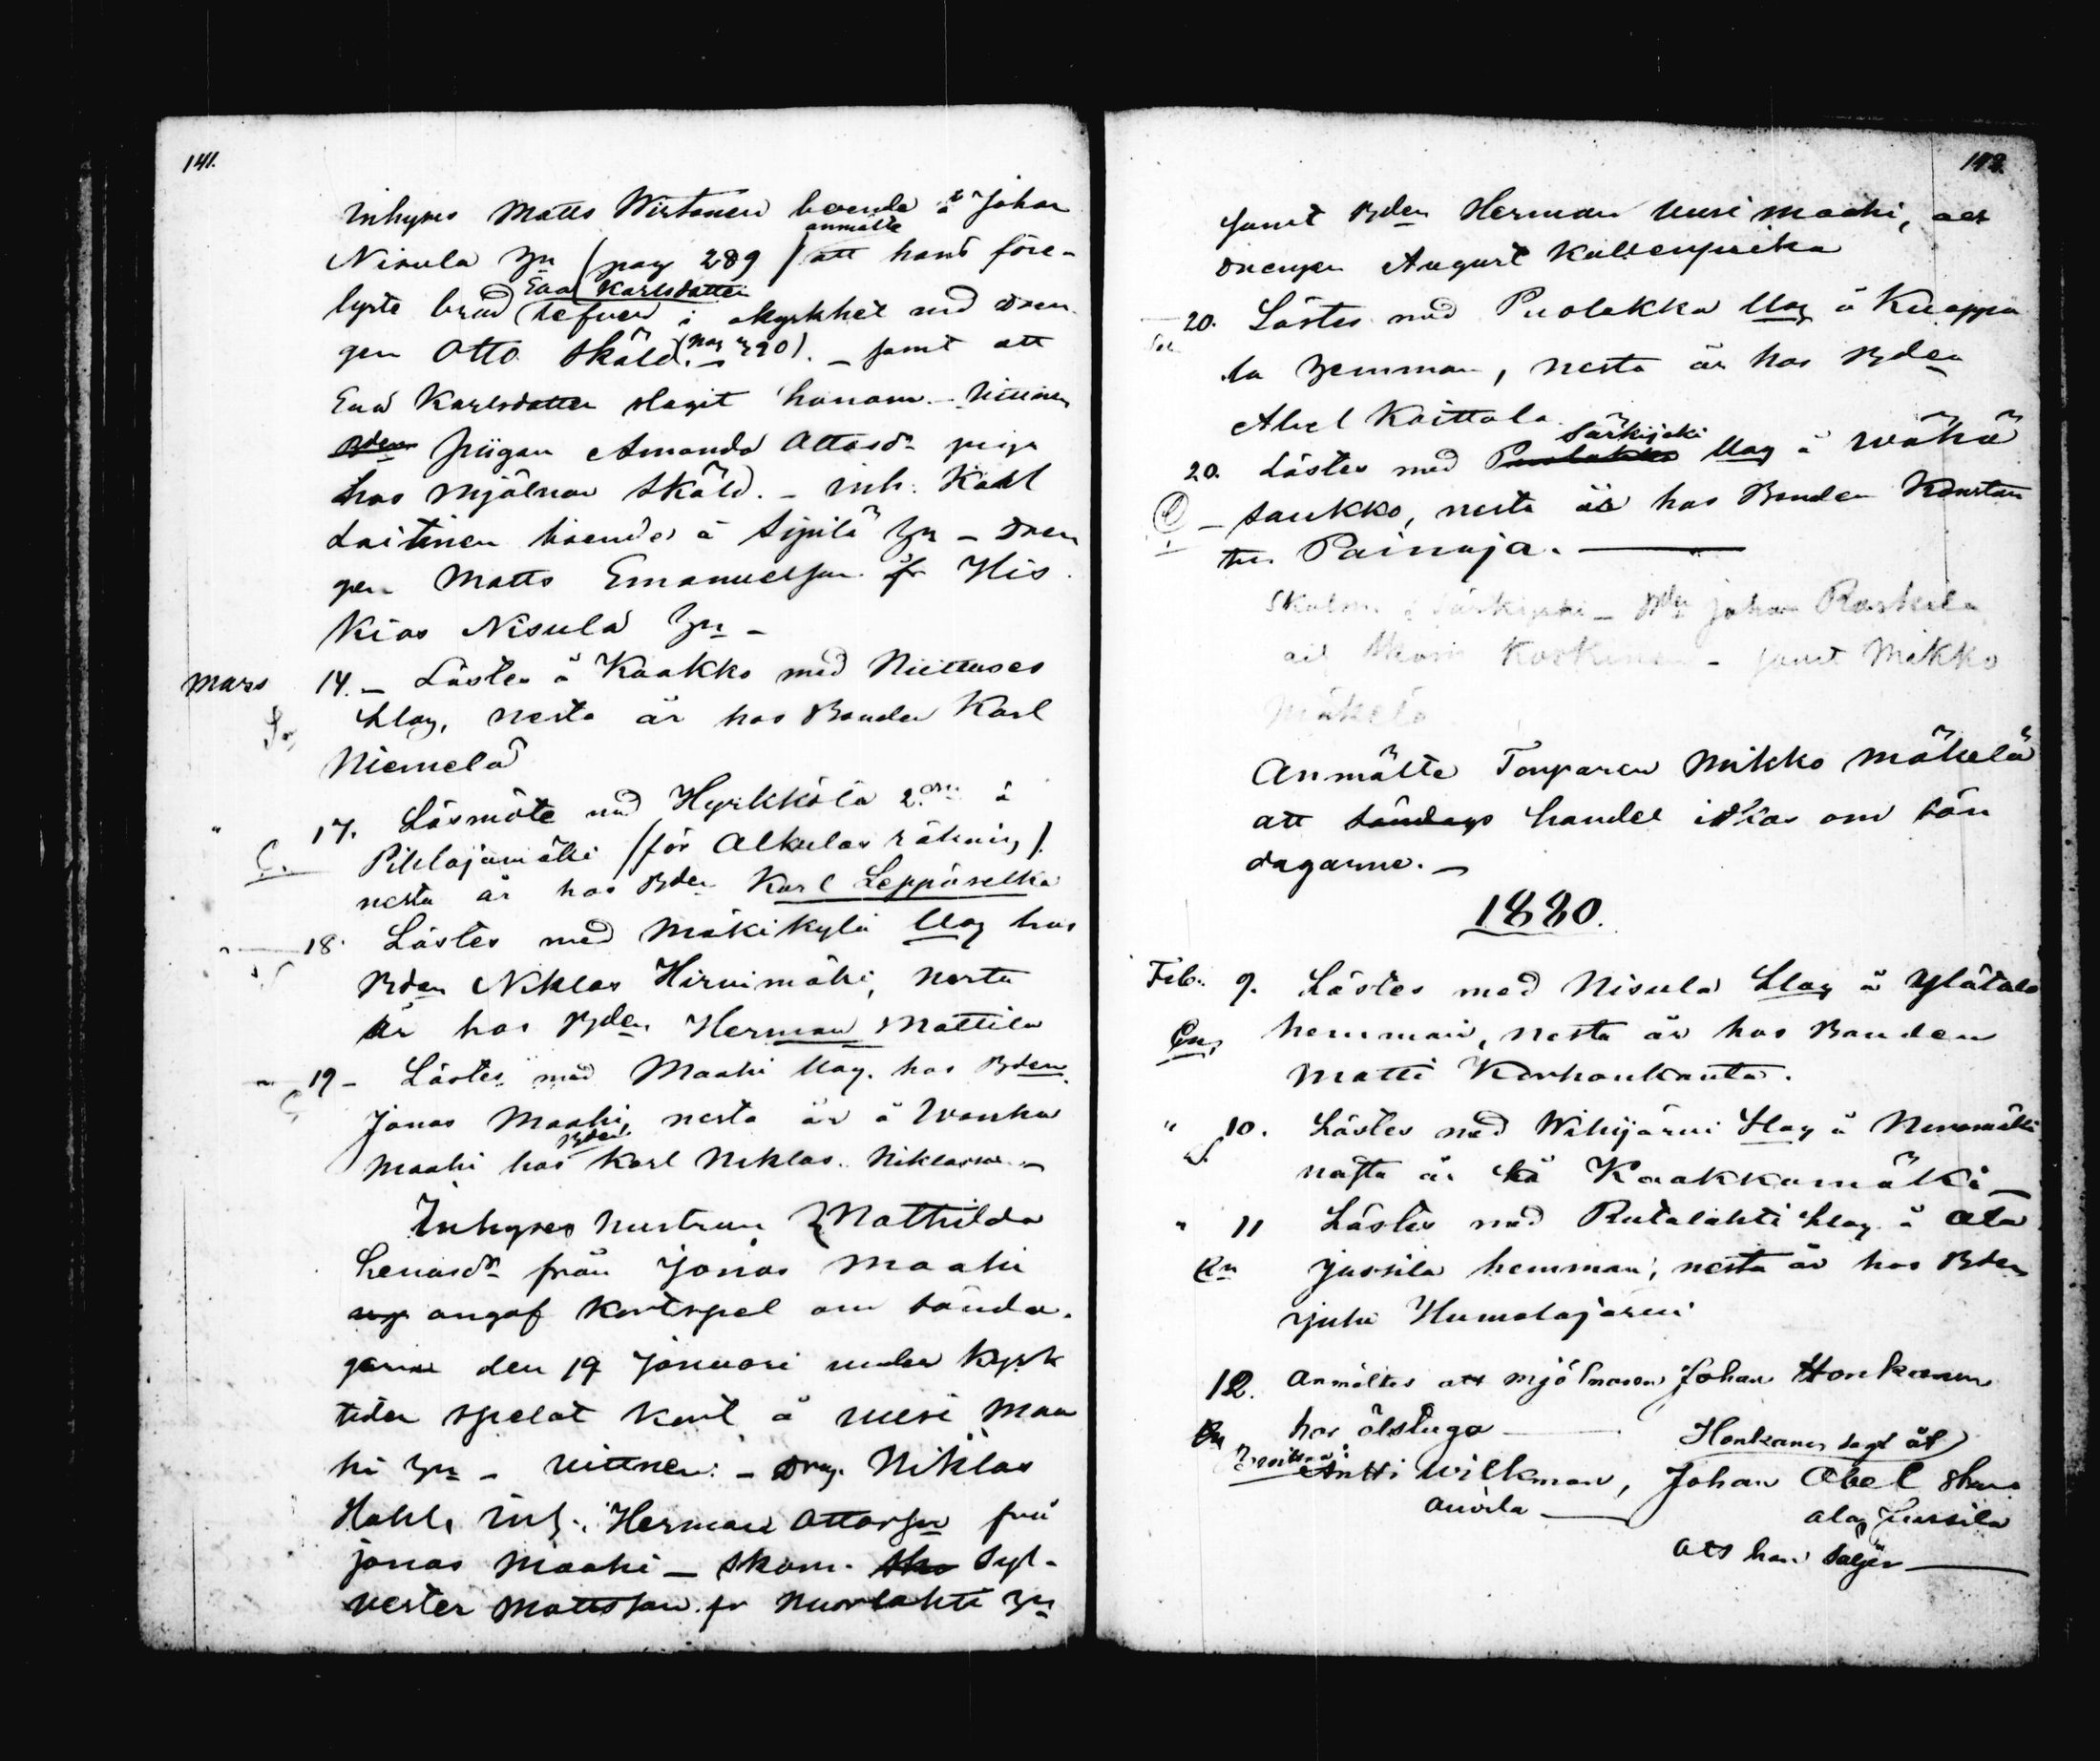 141.
Inhyses Matts Wirtanen boende å Johan
anmälte
Nisula hn (pag 289) att hans före-
Eva Karlsdotter
lyste brud lefver i okyskhet med dren
gen Otto Sköld (pag 290). – samt att
Eva Karlsdotter slagit honom. – Vittnen
Bden pigan Amanda Ottosdr piga
hos mjölnar Sköld. – inh: Karl
Laitinen boende å Sipilä hn – Dren
gen Matts Emanuelson fr His
kias Nisula hn –
Mars 14. – Lästes å Kaakko med Niittuses
llag, nesta är hos Bonden Karl
Niemelä
" 17. Läsmöte med Hyrkkölä 2. å
Pihlajamäki (för Alkulas räkning)
nesta är hos Bden Karl Leppäselkä
" 18. Lästes med Mäkikylä llag hos
Bden Niklas Hirvimäki, nesta
är hos Bden Herman Mattila
" 19 – Lästes med Maahi llag. hos Bden
Jonas Maahi, nesta är å Wanha
Bden
Maahi hos Karl Niklas Niklasson –
Inhyses hustrun Mathilda
Henasdr från Jonas Maahi
angaf kortspel om sönda.
garne den 19 Januari under kyrk
tiden spelat kort å Uusi Maa
hi hn – vittnen: – Drng. Niklas
Hahl, Inh. Herman Ottosson frå
Jonas Maahi – skom. Syl-
vester Mattsson fr Nuorlahti hn
142.
samt Bden Herman Uusi Maahi, och
drengen August Kallenpoika
20. Lästes med Puolakka llag å Knaappi
la hemman, nesta är hos Bden
Abel Koittola
Särkijoki
20. Lästes med Puolakka llag å Wähä
Saukko, nesta är hos Bonden Konstan
tin Painoja.
Särkijoki – Bden Johan Raskila
Koskinen – samt Mikko
Mäkelä
Anmälte Torparen Mikko Mäkelä
att söndags handel idkas om sön
dagarne. –
1880.
Feb. 9. Lästes med Nisula llag å Ylätalo
hemman, nesta är hos Bonden
Matti Korhonkanta.
" 10. Lästes med Wihijärvi llag å Nevamäki
nästa är å Kaakkomäki –
" 11 Lästes med Rutalahti llag å Ala
Jussila hemman, nesta är hos Bden
Juha Humalajärvi
12. Anmältes att mjölnaren Johan Honkanen
har ölstuga
Honkanen sagt åt
Antti Wilkman, Johan Abel
Anvila
Ala Jussila
att han säljer